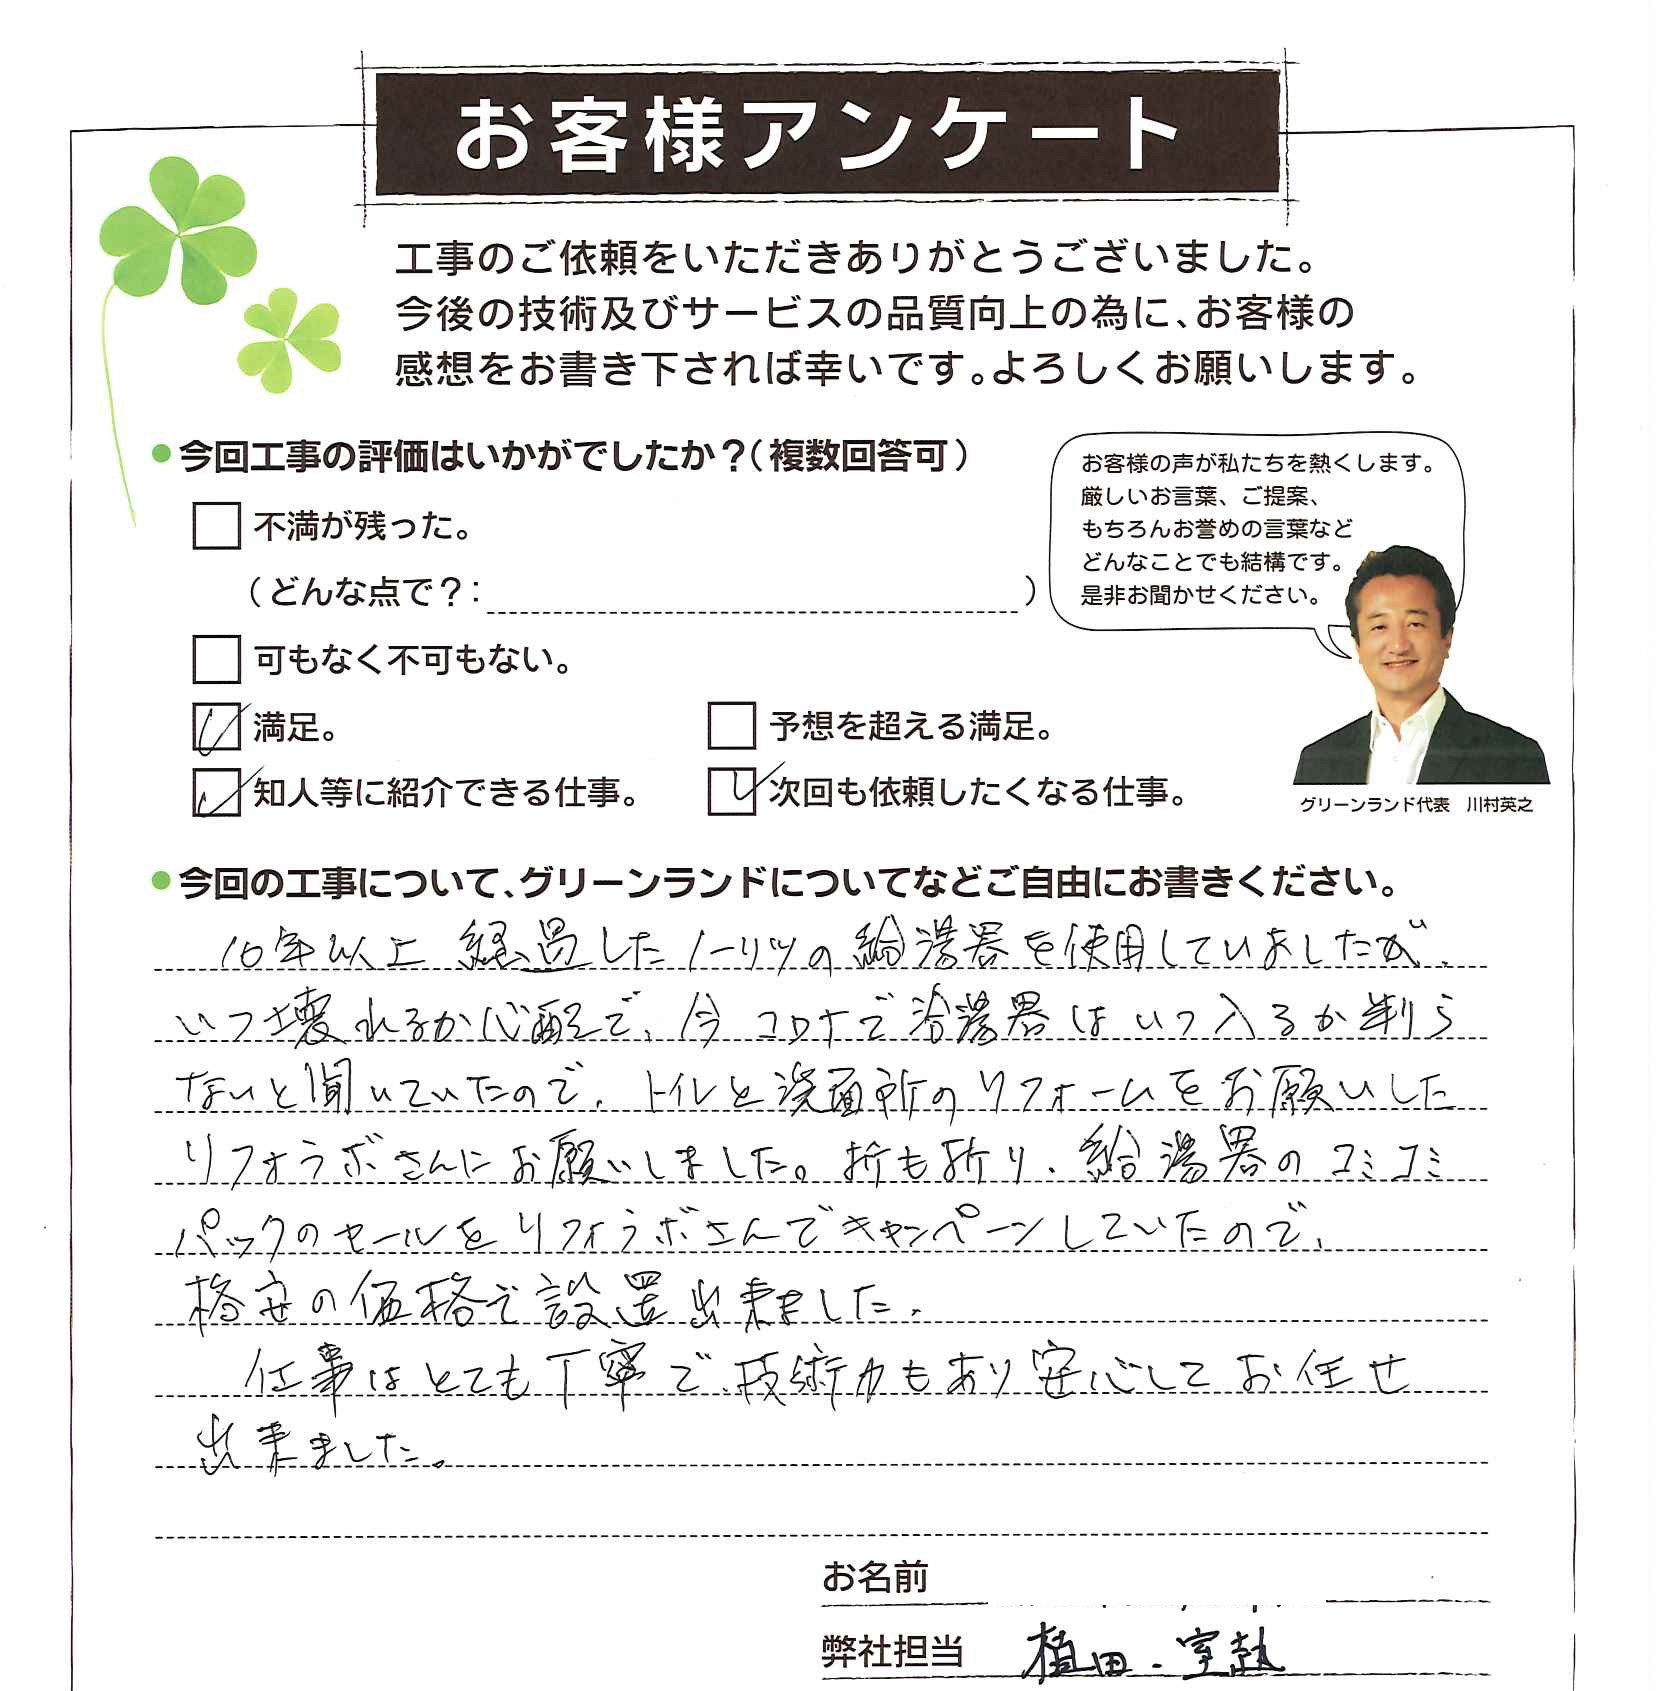 お客様アンケート
工事のご依頼をいただきありがとうございました。
今後の技術及びサービスの品質向上の為に、お客様の
感想をお書き下されば幸いです。よろしくお願いします。
今回工事の評価はいかがでしたか？（複数回答可）
不満が残った。
（どんな点で？： ）
可もなく不可もない。
満足。
予想を超える満足。
知人等に紹介できる仕事。
次回も依頼したくなる仕事。
お客様の声が私たちを熱くします。
厳しいお言葉、ご提案、
もちろんお誉めの言葉など
どんなことでも結構です。
是非お聞かせください。
グリーンランド代表　川村英之
今回の工事について、グリーンランドについてなどご自由にお書きください。
10年以上 経過した ノーリツの給湯器を使用していましたが、
いつ壊れるか心配で、今 コロナで給湯器はいつ入るか判ら
ないと聞いていたので、トイレと洗面所のリフォームをお願いした
リフォラボさんにお願いしました。折も折り、給湯器のコミコミ
パックのセールをリフォラボさんでキャンペーンしていたので、
格安の価格で設置出来ました。
仕事はとても丁寧で、技術力もあり安心してお任せ
出来ました。
お名前
弊社担当 植田・